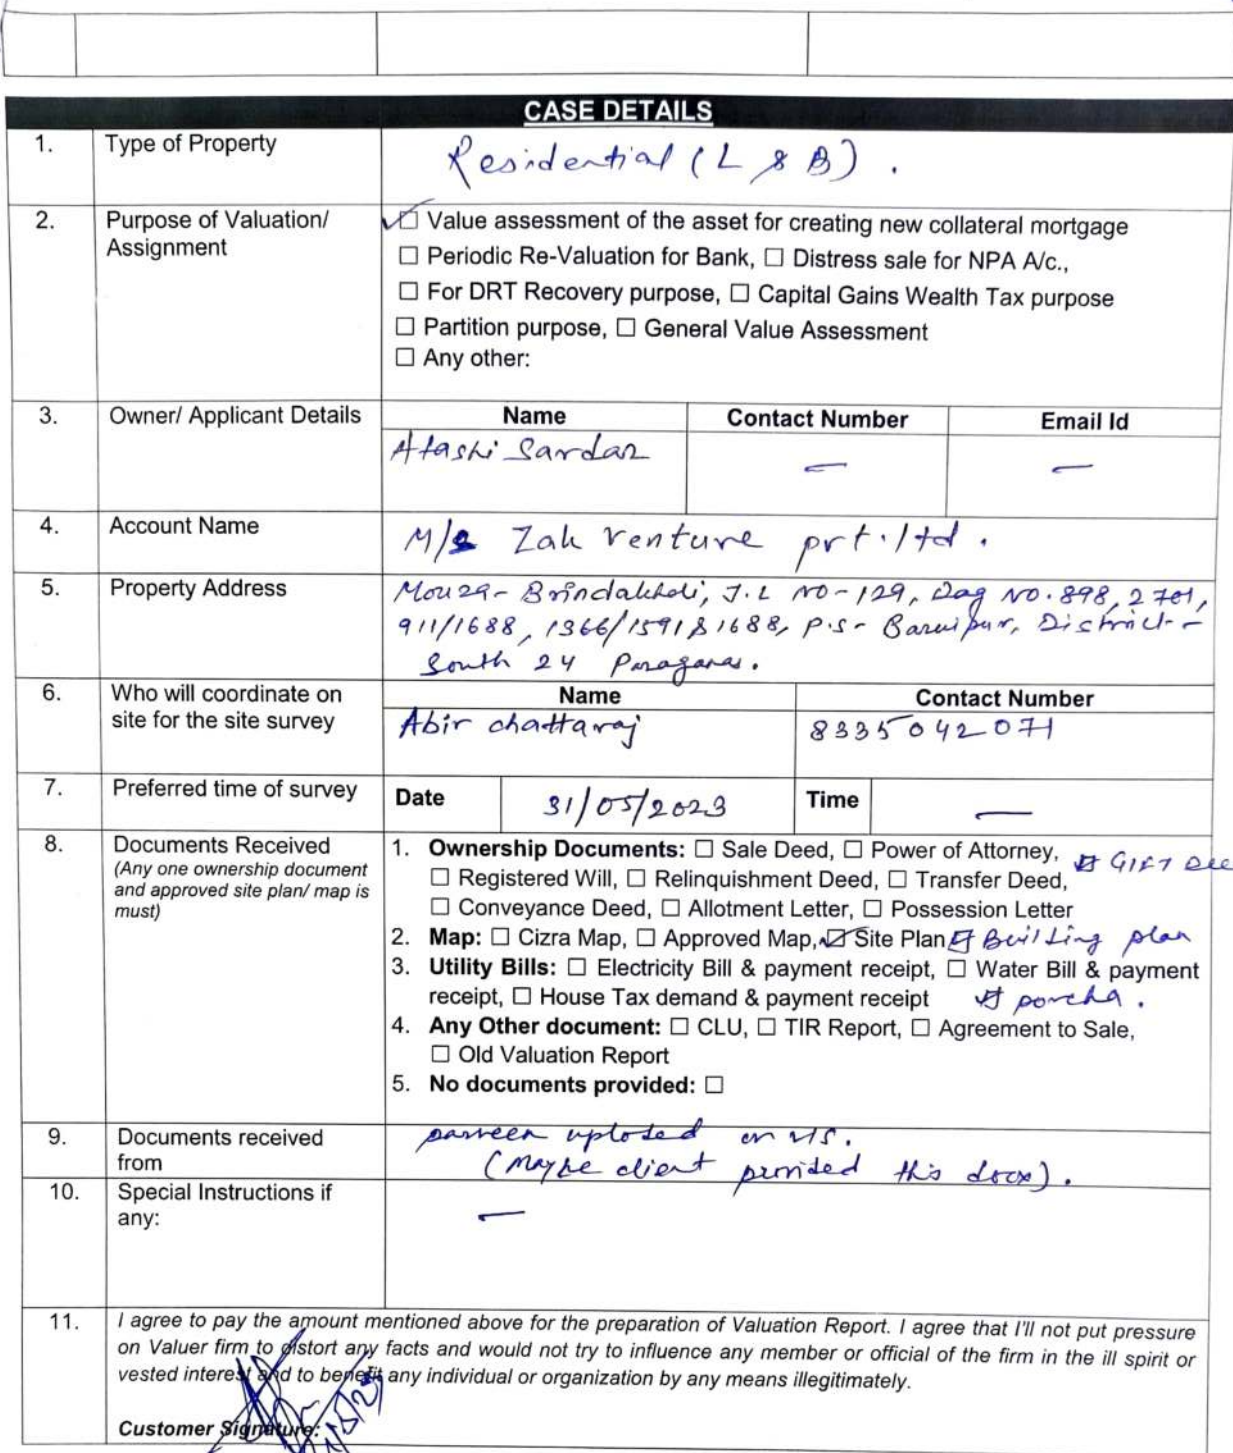 CASE DETAILS
1. Type of Property Residential (L & B).
2. Purpose of Valuation/ Assignment
☑ Value assessment of the asset for creating new collateral mortgage
☐ Periodic Re-Valuation for Bank, ☐ Distress sale for NPA A/c.,
☐ For DRT Recovery purpose, ☐ Capital Gains Wealth Tax purpose
☐ Partition purpose, ☐ General Value Assessment
☐ Any other:
3. Owner/ Applicant Details Name Contact Number Email Id
Atashi Sardar — —
4. Account Name M/s Zak venture prt. ltd.
5. Property Address Mouza- Brindakhali, J.L NO-129, Dag NO. 898, 2701,
911/1688, 1366/1591 & 1688, P.S- Baruipur, District-
South 24 Paraganas.
6. Who will coordinate on site for the site survey Name Contact Number
Abir chattaraj 8335042071
7. Preferred time of survey Date 31/05/2023 Time —
8. Documents Received
(Any one ownership document
and approved site plan/ map is
must)
1. Ownership Documents: ☐ Sale Deed, ☐ Power of Attorney, ☑ GIFT Dee
☐ Registered Will, ☐ Relinquishment Deed, ☐ Transfer Deed,
☐ Conveyance Deed, ☐ Allotment Letter, ☐ Possession Letter
2. Map: ☐ Cizra Map, ☐ Approved Map, ☑ Site Plan ☑ Building plan
3. Utility Bills: ☐ Electricity Bill & payment receipt, ☐ Water Bill & payment
receipt, ☐ House Tax demand & payment receipt ☑ porcha.
4. Any Other document: ☐ CLU, ☐ TIR Report, ☐ Agreement to Sale,
☐ Old Valuation Report
5. No documents provided: ☐
9. Documents received from parveen uploted on VIS.
(Maybe client pervided this docx).
10. Special Instructions if any: —
11. I agree to pay the amount mentioned above for the preparation of Valuation Report. I agree that I'll not put pressure
on Valuer firm to distort any facts and would not try to influence any member or official of the firm in the ill spirit or
vested interest and to benefit any individual or organization by any means illegitimately.
Customer Signature: